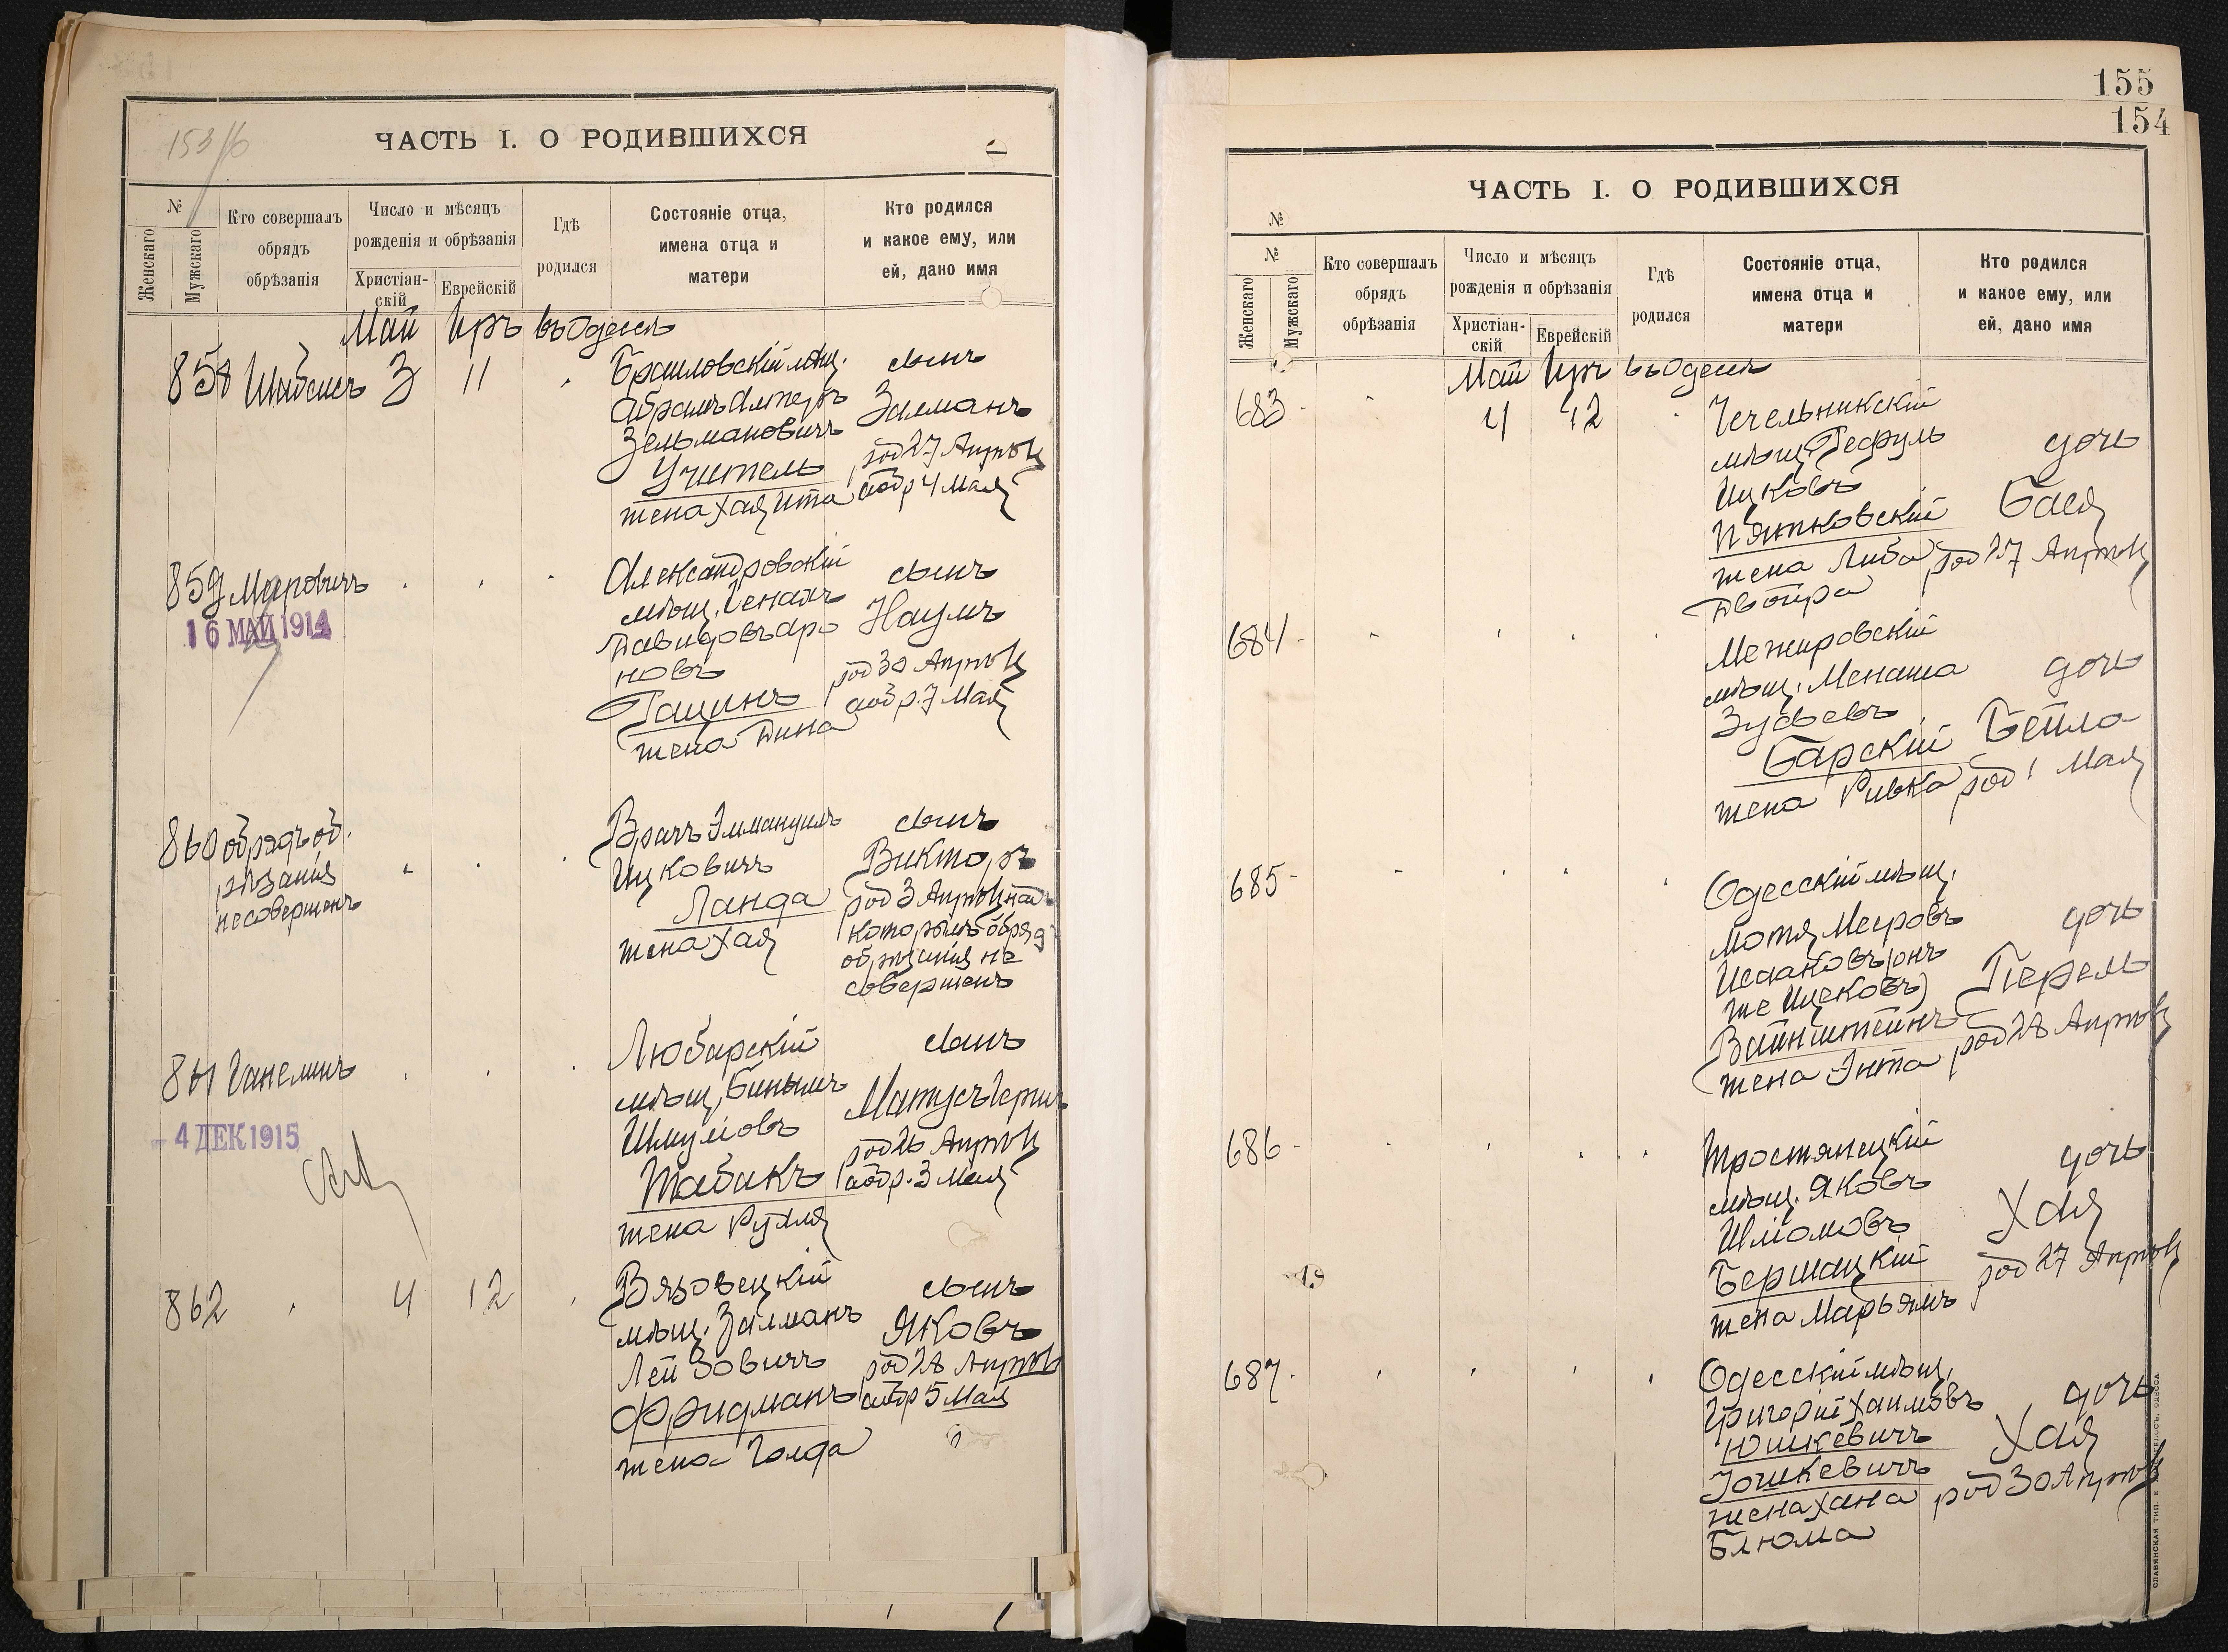 153/б
ЧАСТЬ I. О РОДИВШИХСЯ
№
Женскаго
Мужскаго
Кто совершалъ
обрядъ
обрѣзанія
Число и мѣсяцъ
рожденія и обрѣзанія
Христіан-
скій
Еврейскій
Гдѣ
родился
Состояніе отца,
имена отца и
матери
Кто родился
и какое ему, или
ей, дано имя
Май Иръ въ Одессѣ
858 3 11
Браиловскій мѣщ.
Абрамъ Альтеръ
Зельмановичъ
Учитель
жена Хая Ита
сынъ
Залманъ
род 27 Апрѣля
обр 4 Мая
859 Мееровичъ
16 МАЙ 1914
Александровскій
мѣщ.
Давидовъ Аро
новъ
Гацинъ
жена Дина
сынъ
Наумъ
род 30 Апрѣля
обр. 7 Мая
860 обрядъ об.
рѣзанія
не совершенъ
Врачъ Эммануилъ
Ицковичъ
Ланда
жена Хая
сынъ
Викторъ
род 3 Апрѣля над
которымъ обряд
обрѣзанія не
совершенъ
861 Ганелинъ
4 ДЕК 1915
Любарскій
мѣщ. Биньминъ
Шмулевъ
Табакъ
жена Рухля
сынъ
Матусъ Герш
род 26 Апрѣля
обр. 3 Мая
862 4 12
Вязовецкій
мѣщ. Залманъ
Лейзовичъ
Фридманъ
жена Голда
сынъ
Яковъ
род 28 Апрѣля
обр 5 Мая
155
154
ЧАСТЬ I. О РОДИВШИХСЯ
№
№
Женскаго
Мужскаго
Кто совершалъ
обрядъ
обрѣзанія
Число и мѣсяцъ
рожденія и обрѣзанія
Христіан-
скій
Еврейскій
Гдѣ
родился
Состояніе отца,
имена отца и
матери
Кто родился
и какое ему, или
ей, дано имя
Май Иръ въ Одессѣ
683 4 12
Чечельникскій
мѣщ.
Ицковъ
Пятковскій
жена Либа
Двойра
дочь
Бася
род 27 Апрѣля
684
Межировскій
мѣщ. Менаша
Зусьевъ
Барскій
жена Ривка
дочь
Бейла
род 1 Мая
685
Одесскій мѣщ.
Мотя Мееровъ
Исааковъ (онъ
же Ицековъ)
Вайнштейнъ
жена Энта
дочь
Перель
род 28 Апрѣля
686
Тростянецкій
мѣщ. Яковъ
Шліомовъ
Бершацкій
жена Марьямъ
дочь
Хая
род 27 Апрѣля
687
Одесскій мѣщ.
Григорій Хаимовъ
Юшкевичъ
Іошкевичъ
жена Хана
Блюма
дочь
Хая
род 30 Апрѣля